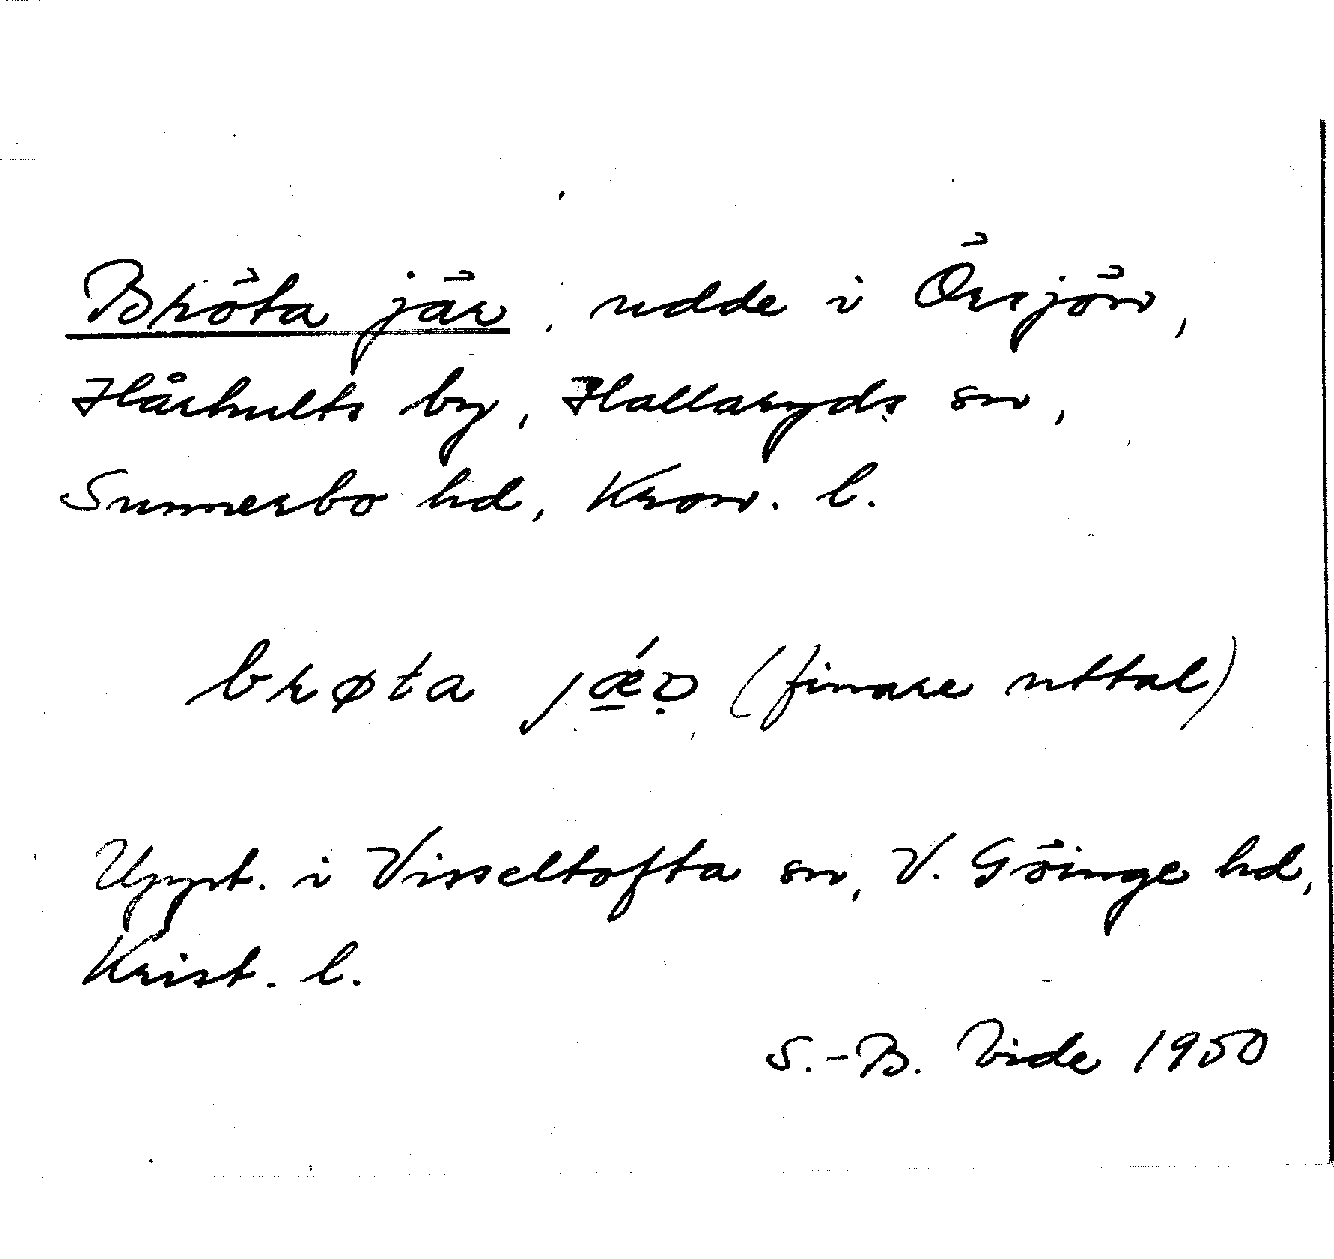 Bröta jär, udde i Örsjön,
Hårhults by, Hallaryds sn,
Sunnerbo hd, Kron. l.
brøta (finare uttal)
Uppt. i Visseltofta sn, V. Göinge hd,
Krist. l.
S.-B. Vide 1950